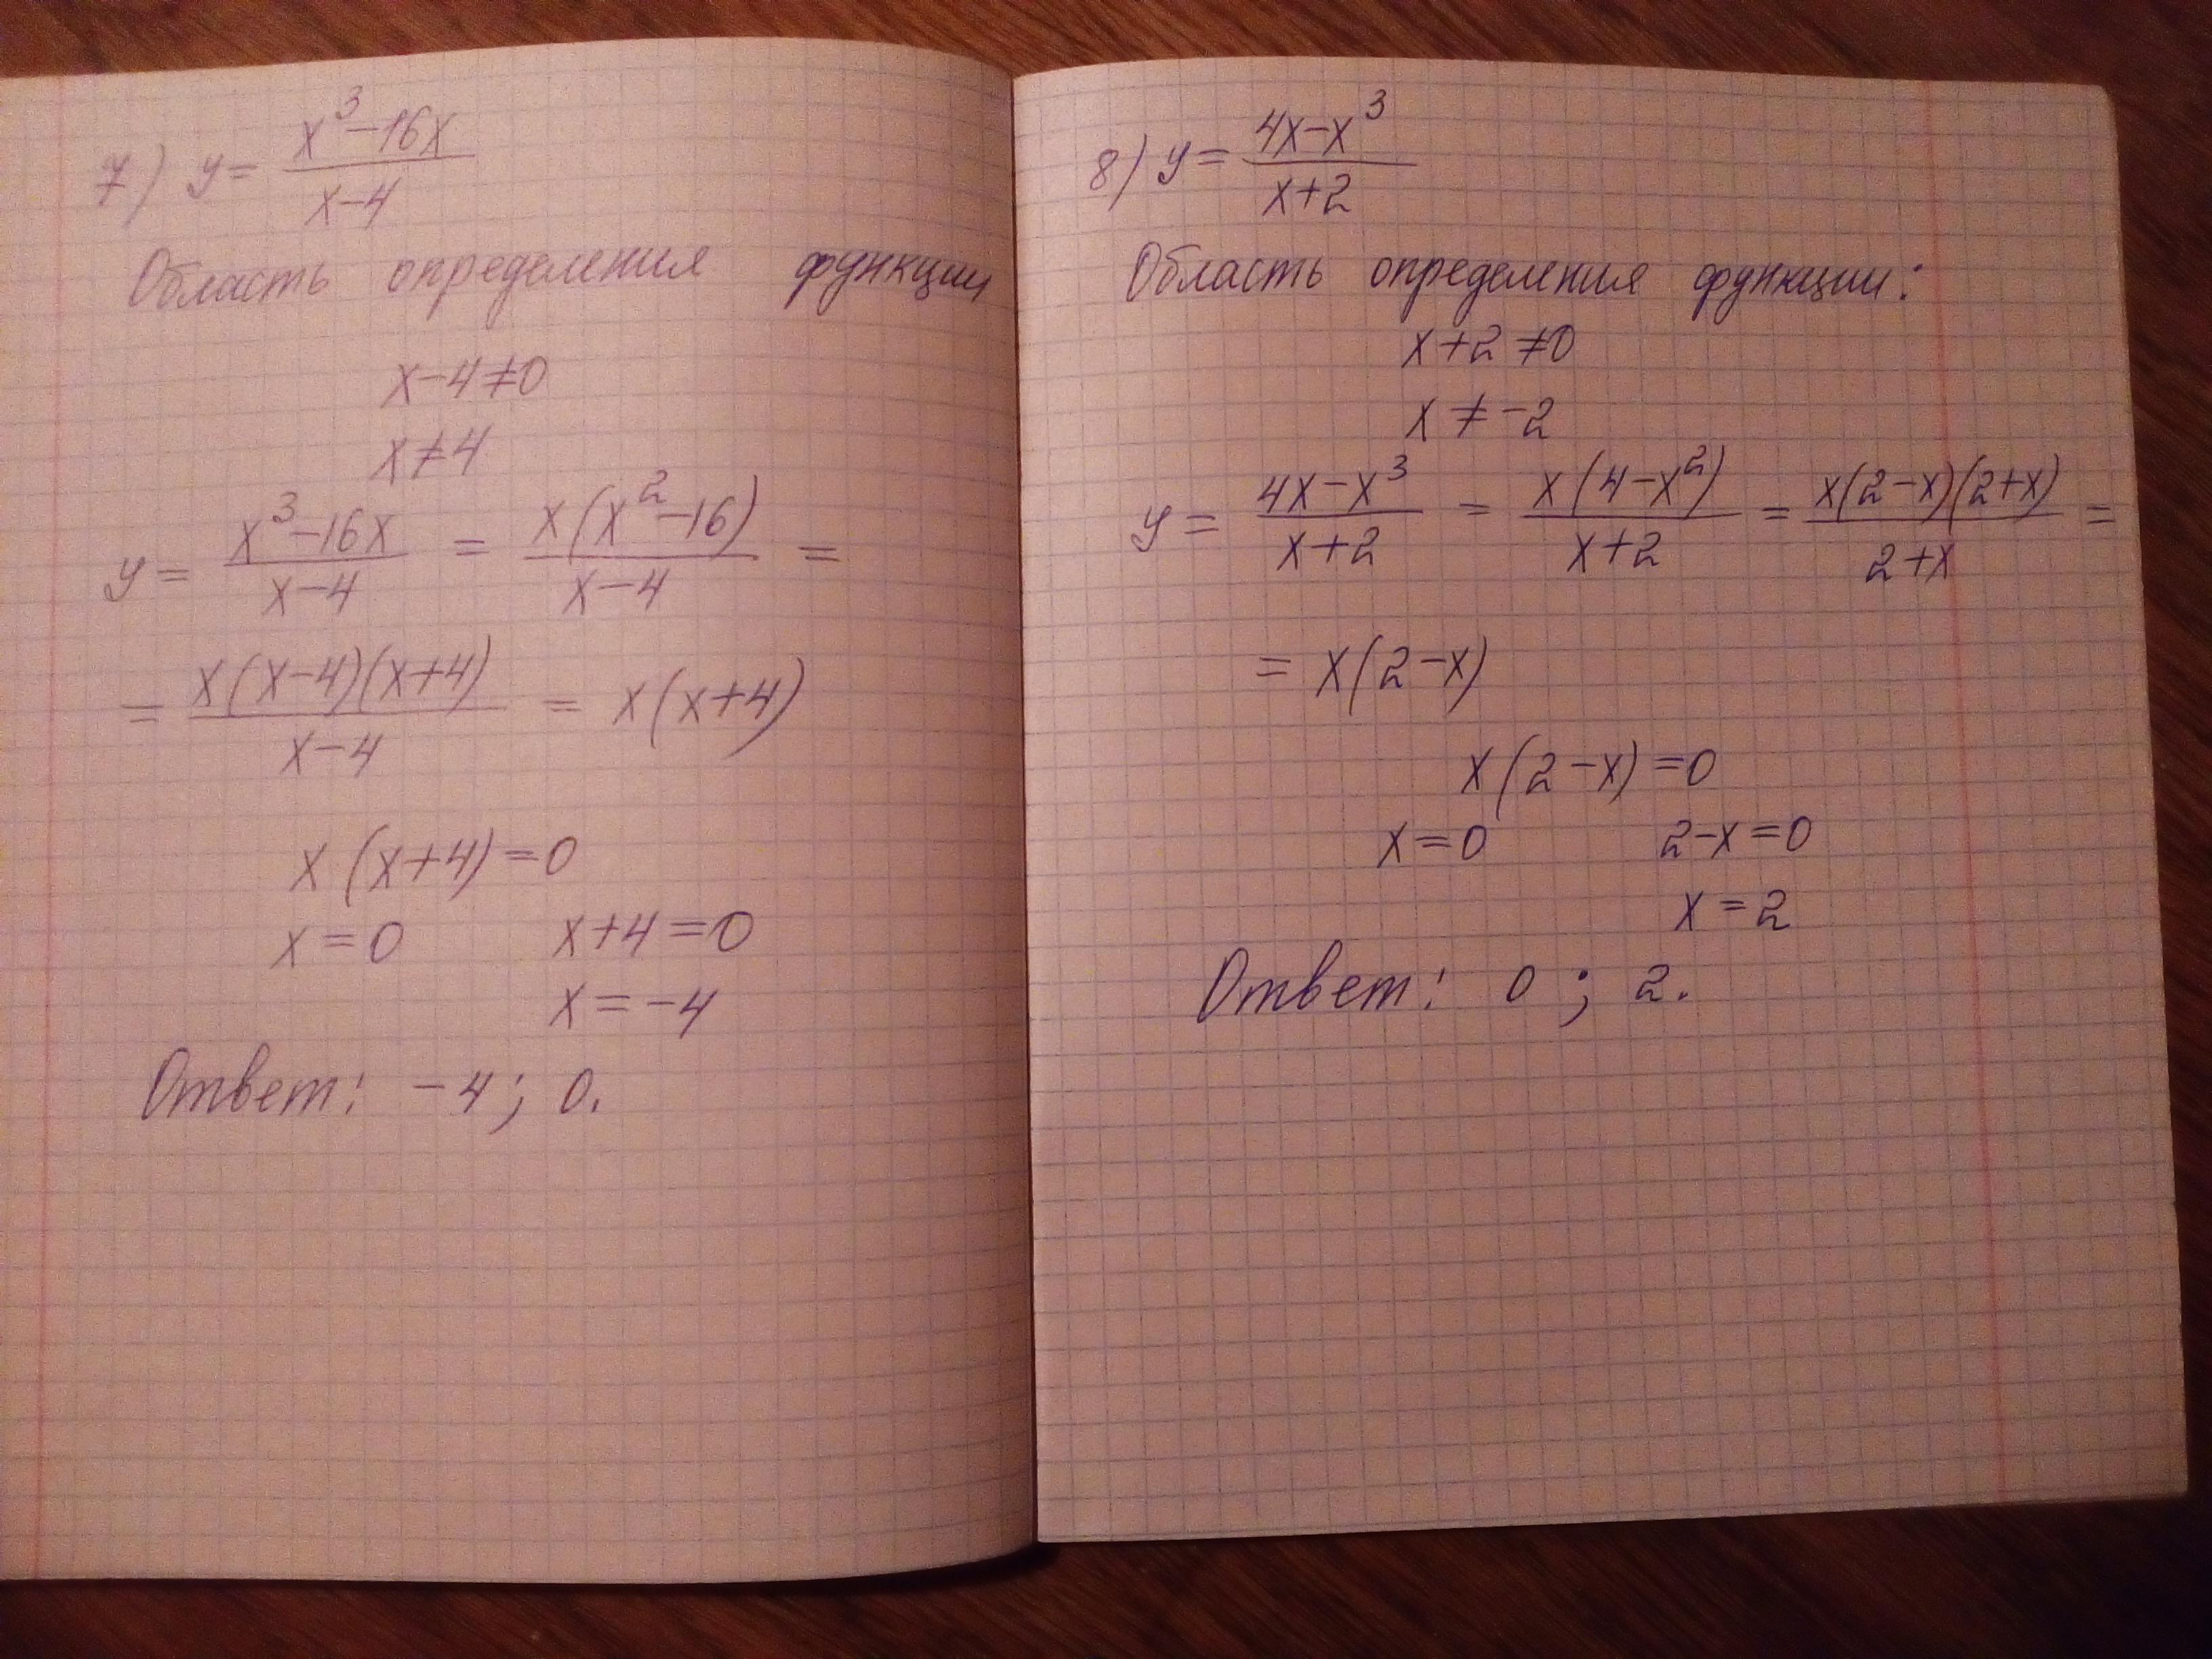 7) y = (x³-16x)/(x-4)
Область определения функции
x-4≠0
x≠4
y = (x³-16x)/(x-4) = x(x²-16)/(x-4) =
= x(x-4)(x+4)/(x-4) = x(x+4)
x(x+4)=0
x=0 x+4=0
x=-4
Ответ: -4; 0.
8) y = (4x-x³)/(x+2)
Область определения функции:
x+2≠0
x≠-2
y = (4x-x³)/(x+2) = x(4-x²)/(x+2) = x(2-x)(2+x)/(2+x) =
= x(2-x)
x(2-x)=0
x=0 2-x=0
x=2
Ответ: 0; 2.